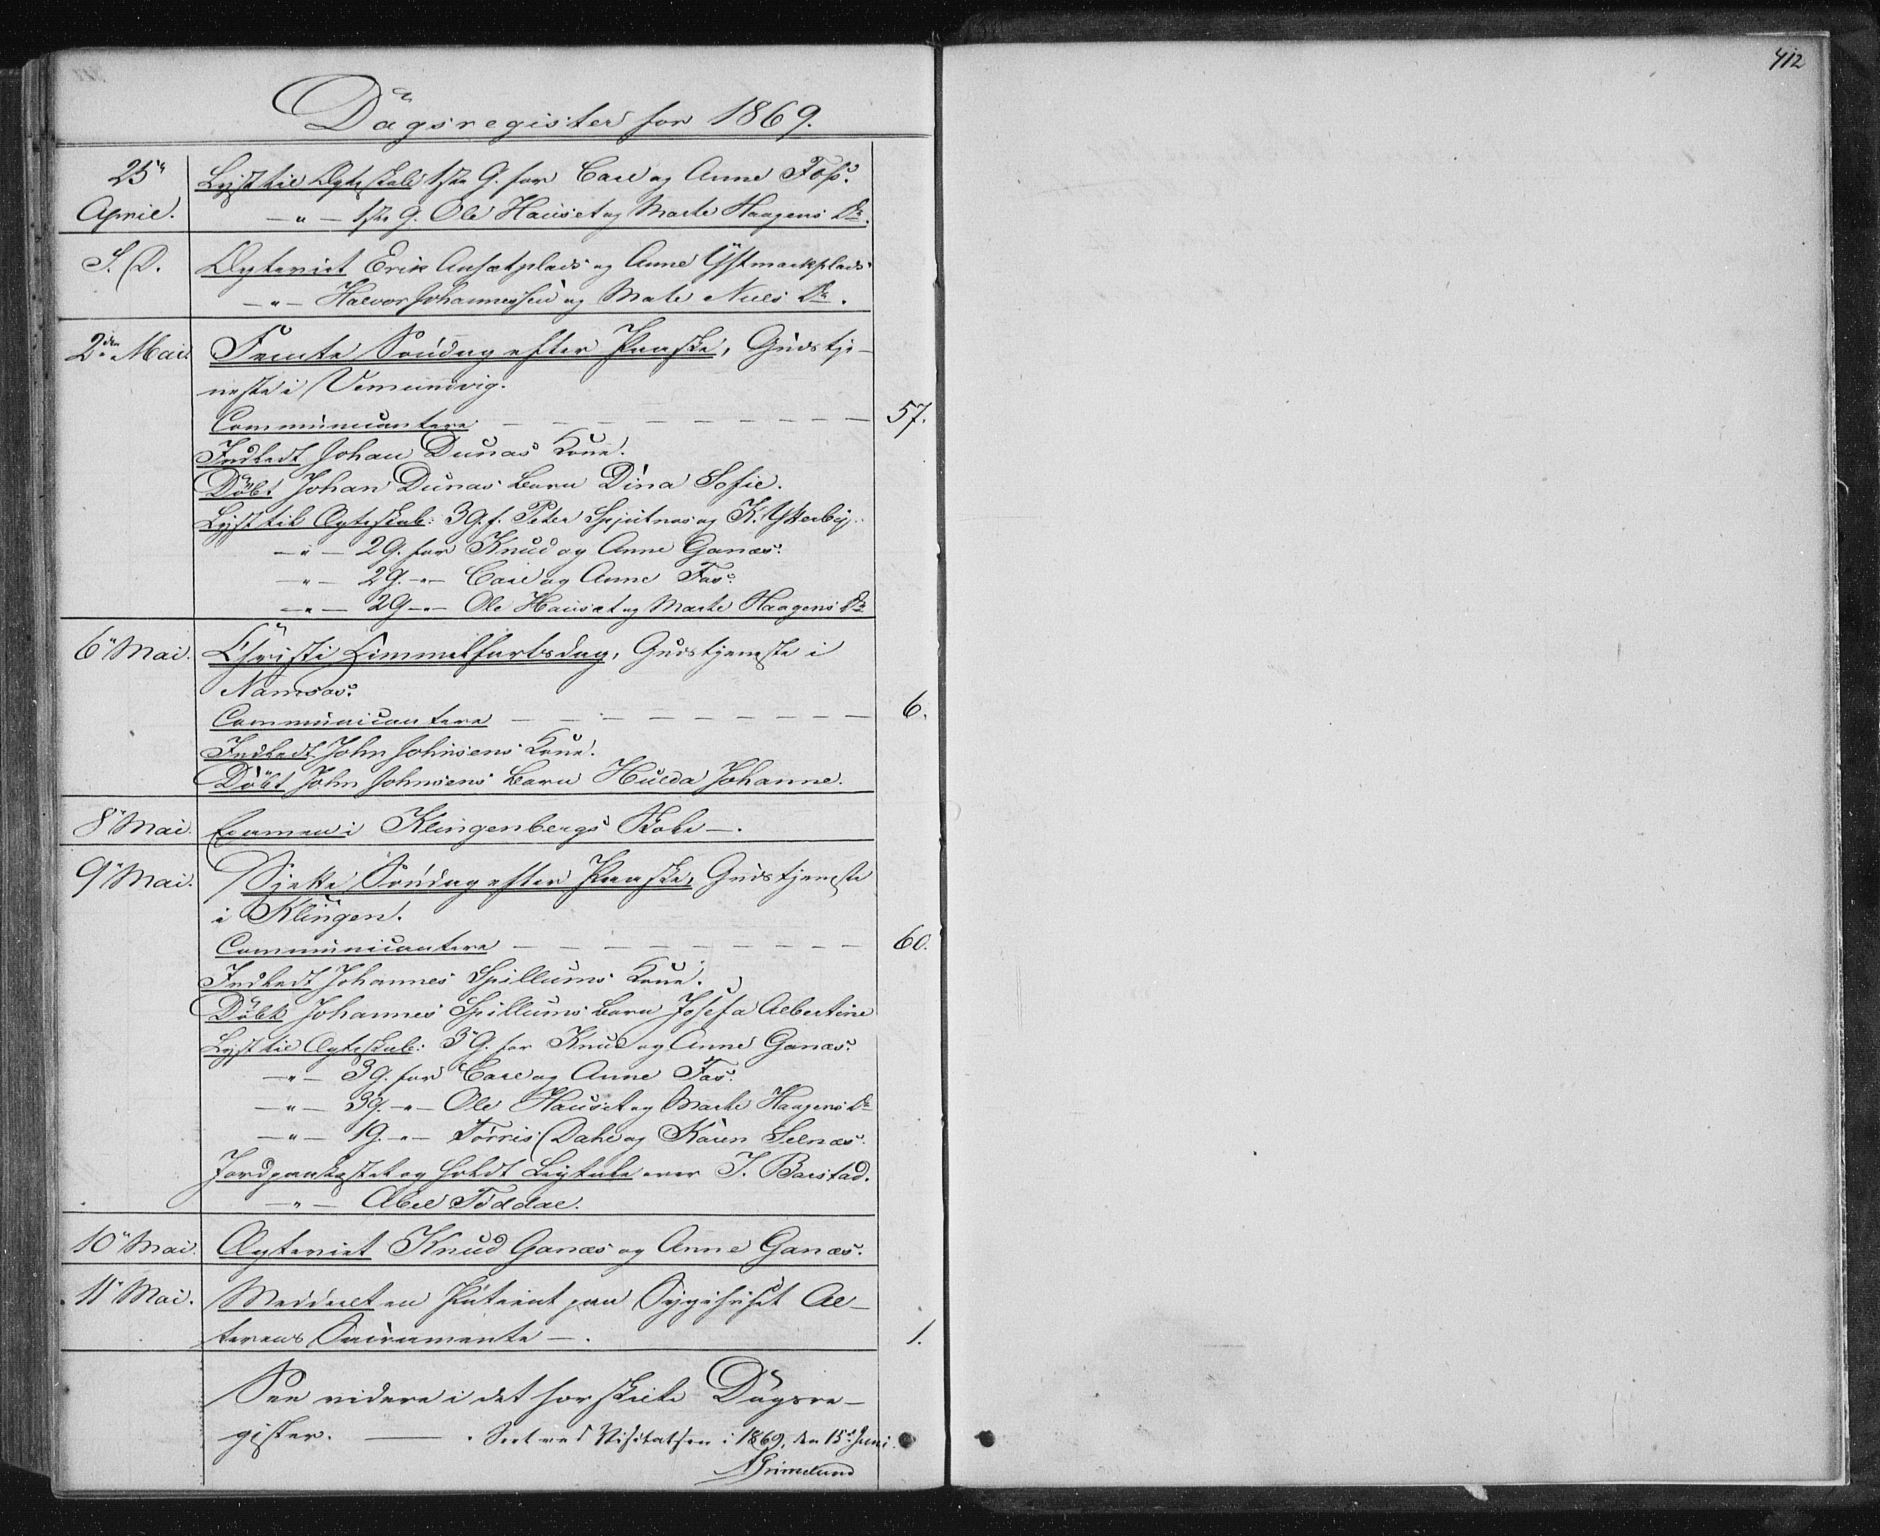 412
Dagsregister for 1869.
25" Lyst til Ægteskab 1ste G. for Carl og Anne Foss.
April. — " — 1ste G. Ole Hauset og Marte Haagens Dr.
S. D. Ægteviet Erik Aufætplads og Anne Ystmarkplads
— " — Halvor Johannessen og Mate Niels Dr.
2den Mai. Femte Søndag efter Paaske, Gudstje-
neste i Vemundvig.
Communicantere — — — — — — — — 57.
Indledt Johan Dunas Kone.
Døbt Johan Dunas Barn Dina Sofie.
Lyst til Ægteskab: 3 G. f. Peter Spjutnes og K. Ytterby.
— " — 2 G. for Knud og Anne Ganæs.
— " — 2 G. — " — Carl og Anne Fos.
— " — 2 G — " — Ole Hauset og Marte Haagens Dr
6" Mai. Christi Himmelfartsdag, Gudstjeneste i
Namsos.
Communicantere — — — — — — — — 6.
Indledt John Johnsens Kone.
Døbt John Johnsens Barn Hulda Johanne.
8" Mai. Examen i Klingenbergs Skole —.
9" Mai. Sjette Søndag efter Paaske, Gudstjeneste
i Klingen.
Communicantere — — — — — — — — 60.
Indledt Johannes Spillums Kone.
Døbt Johannes Spillums Barn Josefa Albertine
Lyst til Ægteskab: 3 G. for Knud og Anne Ganæs.
— " — 3 G. for Carl og Anne Fos.
— " — 3 G. — " — Ole Hauset og Marte Haagens Dr
— " — 1 G. — " — Torris Dahl og Karen Selnæs.
Jordpaakastet og holdt Ligtale over J. Barstad.
— " — Abel Töddal.
10" Mai. Ægteviet Knud Ganæs og Anne Ganæs.
11" Mai. Meddelt en Patient paa Sygehuset Al-
terens Sacramente —. 1.
See videre i det forskilte Dagsre-
gister. — . Seet ved Visitatsen i 1869, den 15de Juni.
A Grimelund